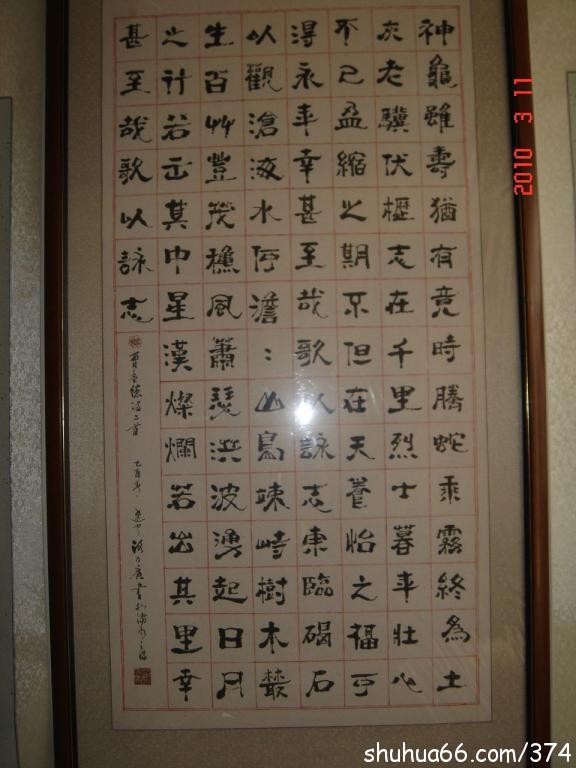 神龜雖壽猶有竟時騰蛇乘霧終為土
灰老驥伏櫪志在千里烈士暮年壯心
不已盈縮之期不但在天養怡之福可
得永年幸甚至哉歌以詠志東臨碣石
以觀滄海水何澹:山島竦峙樹木叢
生百艸豐茂穐風蕭瑟洪波湧起日月
之計若出其中星漢燦爛若出其里幸
甚至哉歌以詠志
曹孟德詩二首 乙酉年
2010 3 11
shuhua66.com/374